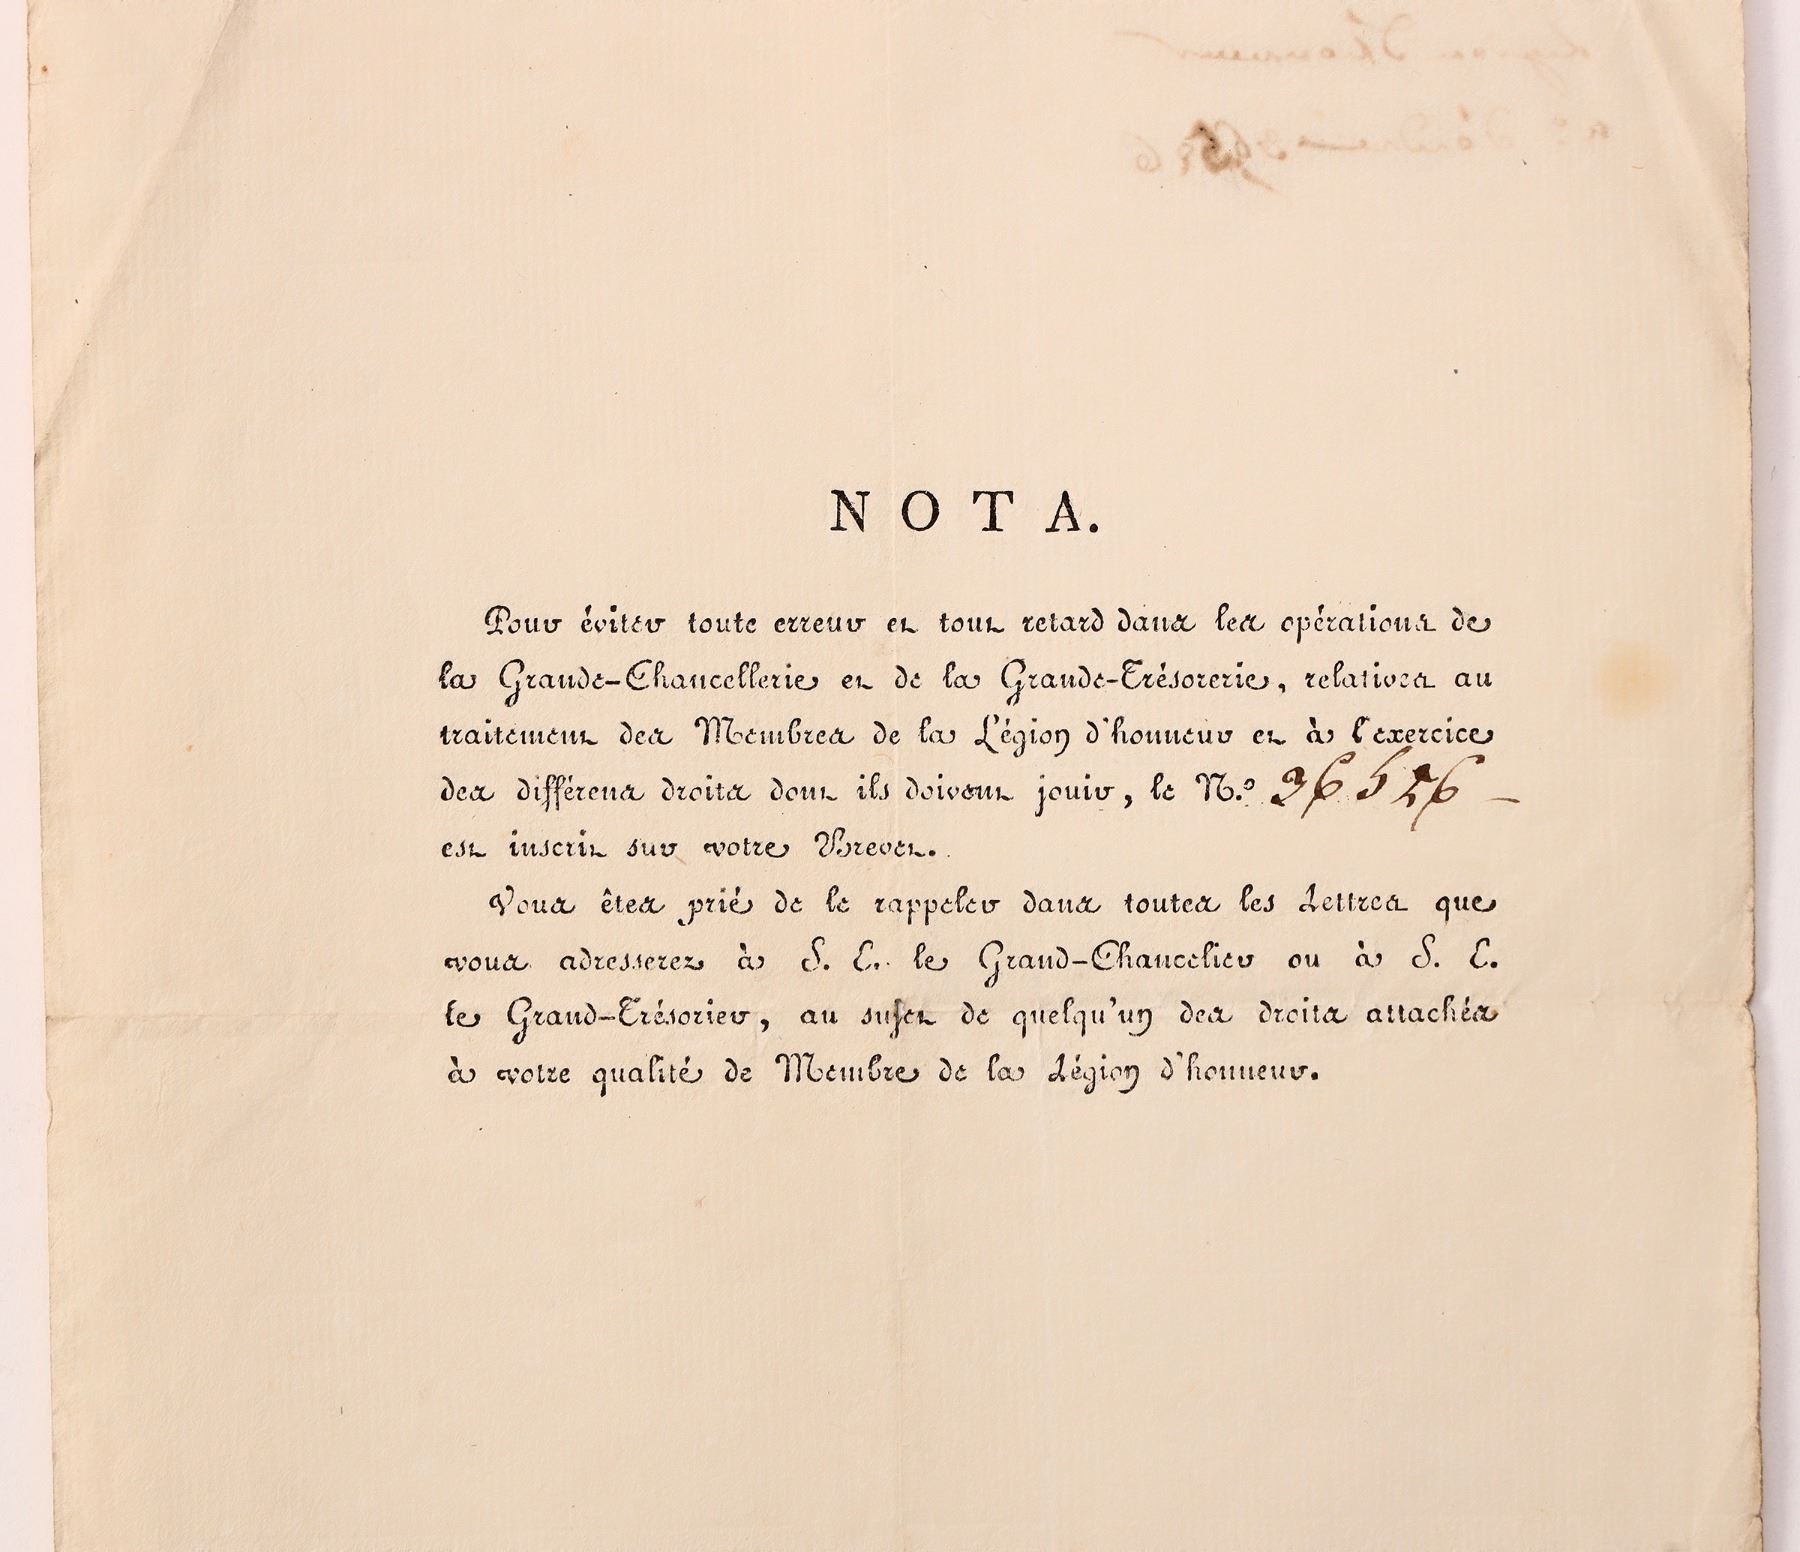 NOTA.
Pour éviter toute erreur et tout retard dans les opérations de
la Grande-Chancellerie et de la Grande-Trésorerie, relatives au
traitement des Membres de la Légion d'honneur et à l'exercice
des différens droits dont ils doivent jouir, le N.º 36526
est inscrit sur votre Brevet.
Vous êtes prié de le rappeler dans toutes les Lettres que
vous adresserez à S. E. le Grand-Chancelier ou à S. E.
le Grand-Trésorier, au sujet de quelqu'un des droits attachés
à votre qualité de Membre de la Légion d'honneur.